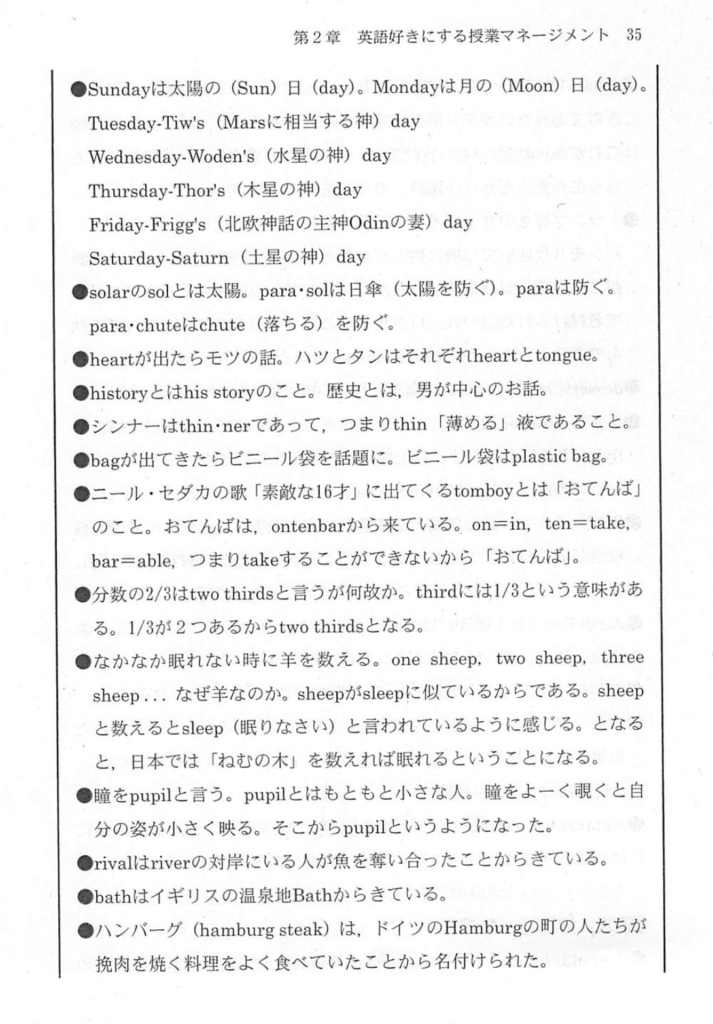 第２章　英語好きにする授業マネージメント　35
●Sundayは太陽の（Sun）日（day）。Mondayは月の（Moon）日（day）。
Tuesday-Tiw's（Marsに相当する神）day
Wednesday-Woden's（水星の神）day
Thursday-Thor's（木星の神）day
Friday-Frigg's（北欧神話の主神Odinの妻）day
Saturday-Saturn（土星の神）day
●solarのsolとは太陽。para・solは日傘（太陽を防ぐ）。paraは防ぐ。
para・chuteはchute（落ちる）を防ぐ。
●heartが出たらモツの話。ハツとタンはそれぞれheartとtongue。
●historyとはhis storyのこと。歴史とは，男が中心のお話。
●シンナーはthin・nerであって，つまりthin「薄める」液であること。
●bagが出てきたらビニール袋を話題に。ビニール袋はplastic bag。
●ニール・セダカの歌「素敵な16才」に出てくるtomboyとは「おてんば」
のこと。おてんばは，ontenbarから来ている。on＝in，ten＝take，
bar＝able，つまりtakeすることができないから「おてんば」。
●分数の2/3はtwo thirdsと言うが何故か。thirdには1/3という意味があ
る。1/3が２つあるからtwo thirdsとなる。
●なかなか眠れない時に羊を数える。one sheep，two sheep，three
sheep... なぜ羊なのか。sheepがsleepに似ているからである。sheep
と数えるとsleep（眠りなさい）と言われているように感じる。となる
と，日本では「ねむの木」を数えれば眠れるということになる。
●瞳をpupilと言う。pupilとはもともと小さな人。瞳をよーく覗くと自
分の姿が小さく映る。そこからpupilというようになった。
●rivalはriverの対岸にいる人が魚を奪い合ったことからきている。
●bathはイギリスの温泉地Bathからきている。
●ハンバーグ（hamburg steak）は，ドイツのHamburgの町の人たちが
挽肉を焼く料理をよく食べていたことから名付けられた。